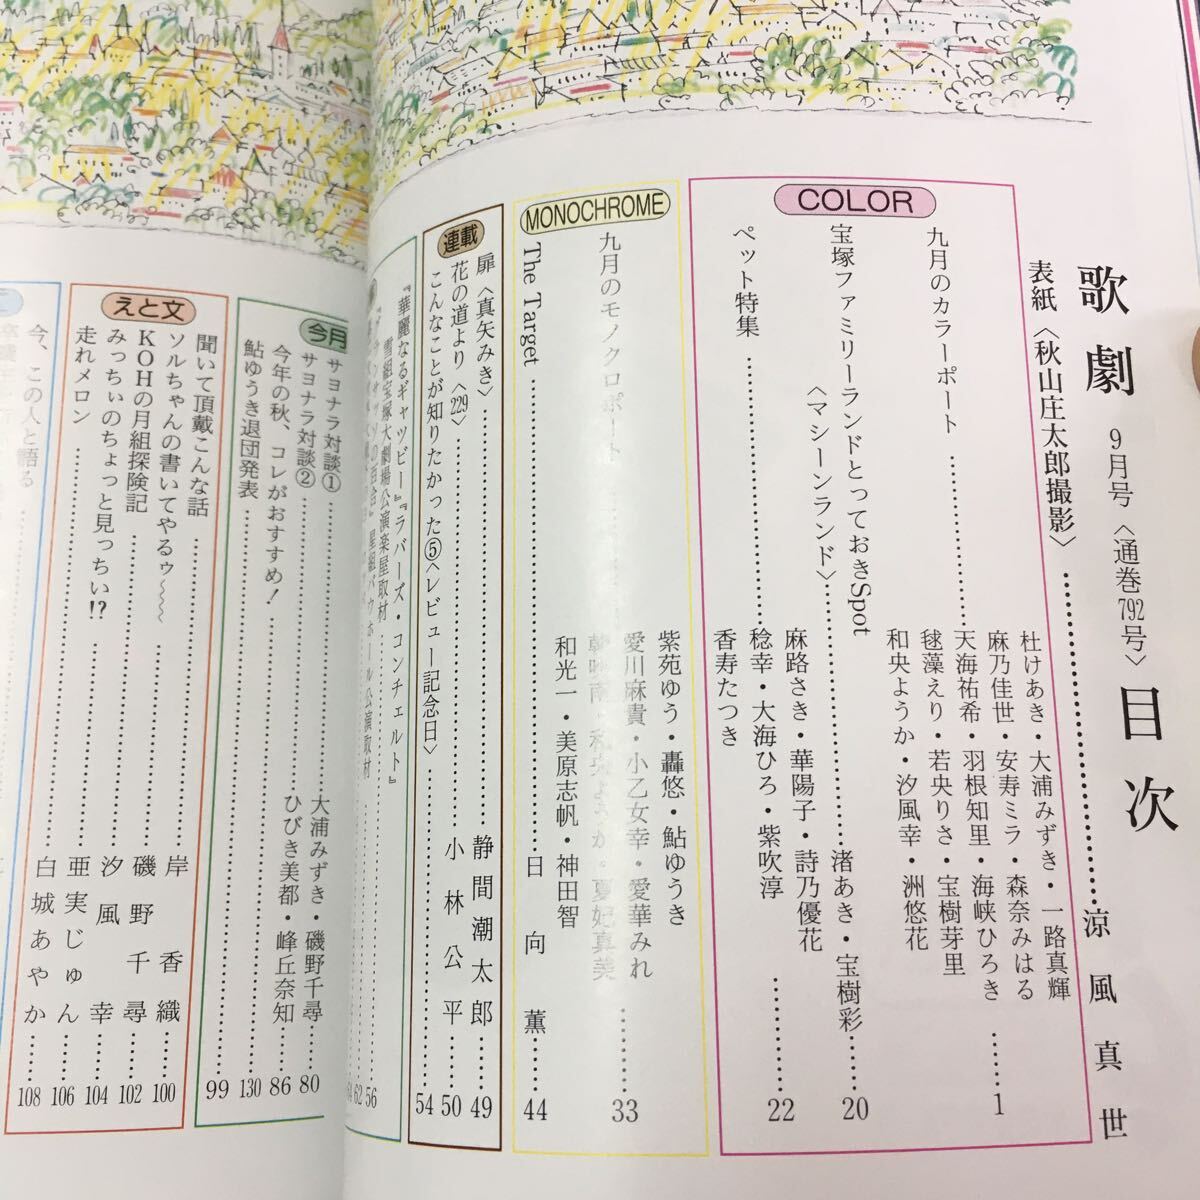 歌劇 9月号〈通巻792号〉目次
表紙〈秋山庄太郎撮影〉……涼風真世
COLOR
九月のカラーポート
杜けあき・大浦みずき・一路真輝
麻乃佳世・安寿ミラ・森奈みはる
天海祐希・羽根知里・海峡ひろき
毬藻えり・若央りさ・宝樹芽里
和央ようか・汐風幸・洲悠花……1
宝塚ファミリーランドとっておきSpot
〈マシーンランド〉……渚あき・宝樹彩……20
ペット特集
麻路さき・華陽子・詩乃優花
稔幸・大海ひろ・紫吹淳
香寿たつき……22
MONOCHROME
九月のモノクロポート
紫苑ゆう・轟悠・鮎ゆうき
愛川麻貴・小乙女幸・愛華みれ
夏妃真美
和光一・美原志帆・神田智……33
The Target……日向薫……44
連載
扉〈真矢みき〉……静間潮太郎……49
花の道より〈229〉……小林公平……50
こんなことが知りたかった⑤〈レビュー記念日〉……54
『華麗なるギャツビー』『ラバーズ・コンチェルト』
雪組宝塚大劇場公演楽屋取材……56
星組バウホール公演取材……62
今月
サヨナラ対談①……大浦みずき・磯野千尋……80
サヨナラ対談②……ひびき美都・峰丘奈知……86
今年の秋、コレがおすすめ!……130
鮎ゆうき退団発表……99
えと文
聞いて頂戴こんな話……岸香織……100
ソルちゃんの書いてやるゥ〜〜〜……磯野千尋……102
KOHの月組探険記……汐風幸……104
みっちぃのちょっと見っちい!?……亜実じゅん……106
走れメロン……白城あやか……108
今、この人と語る